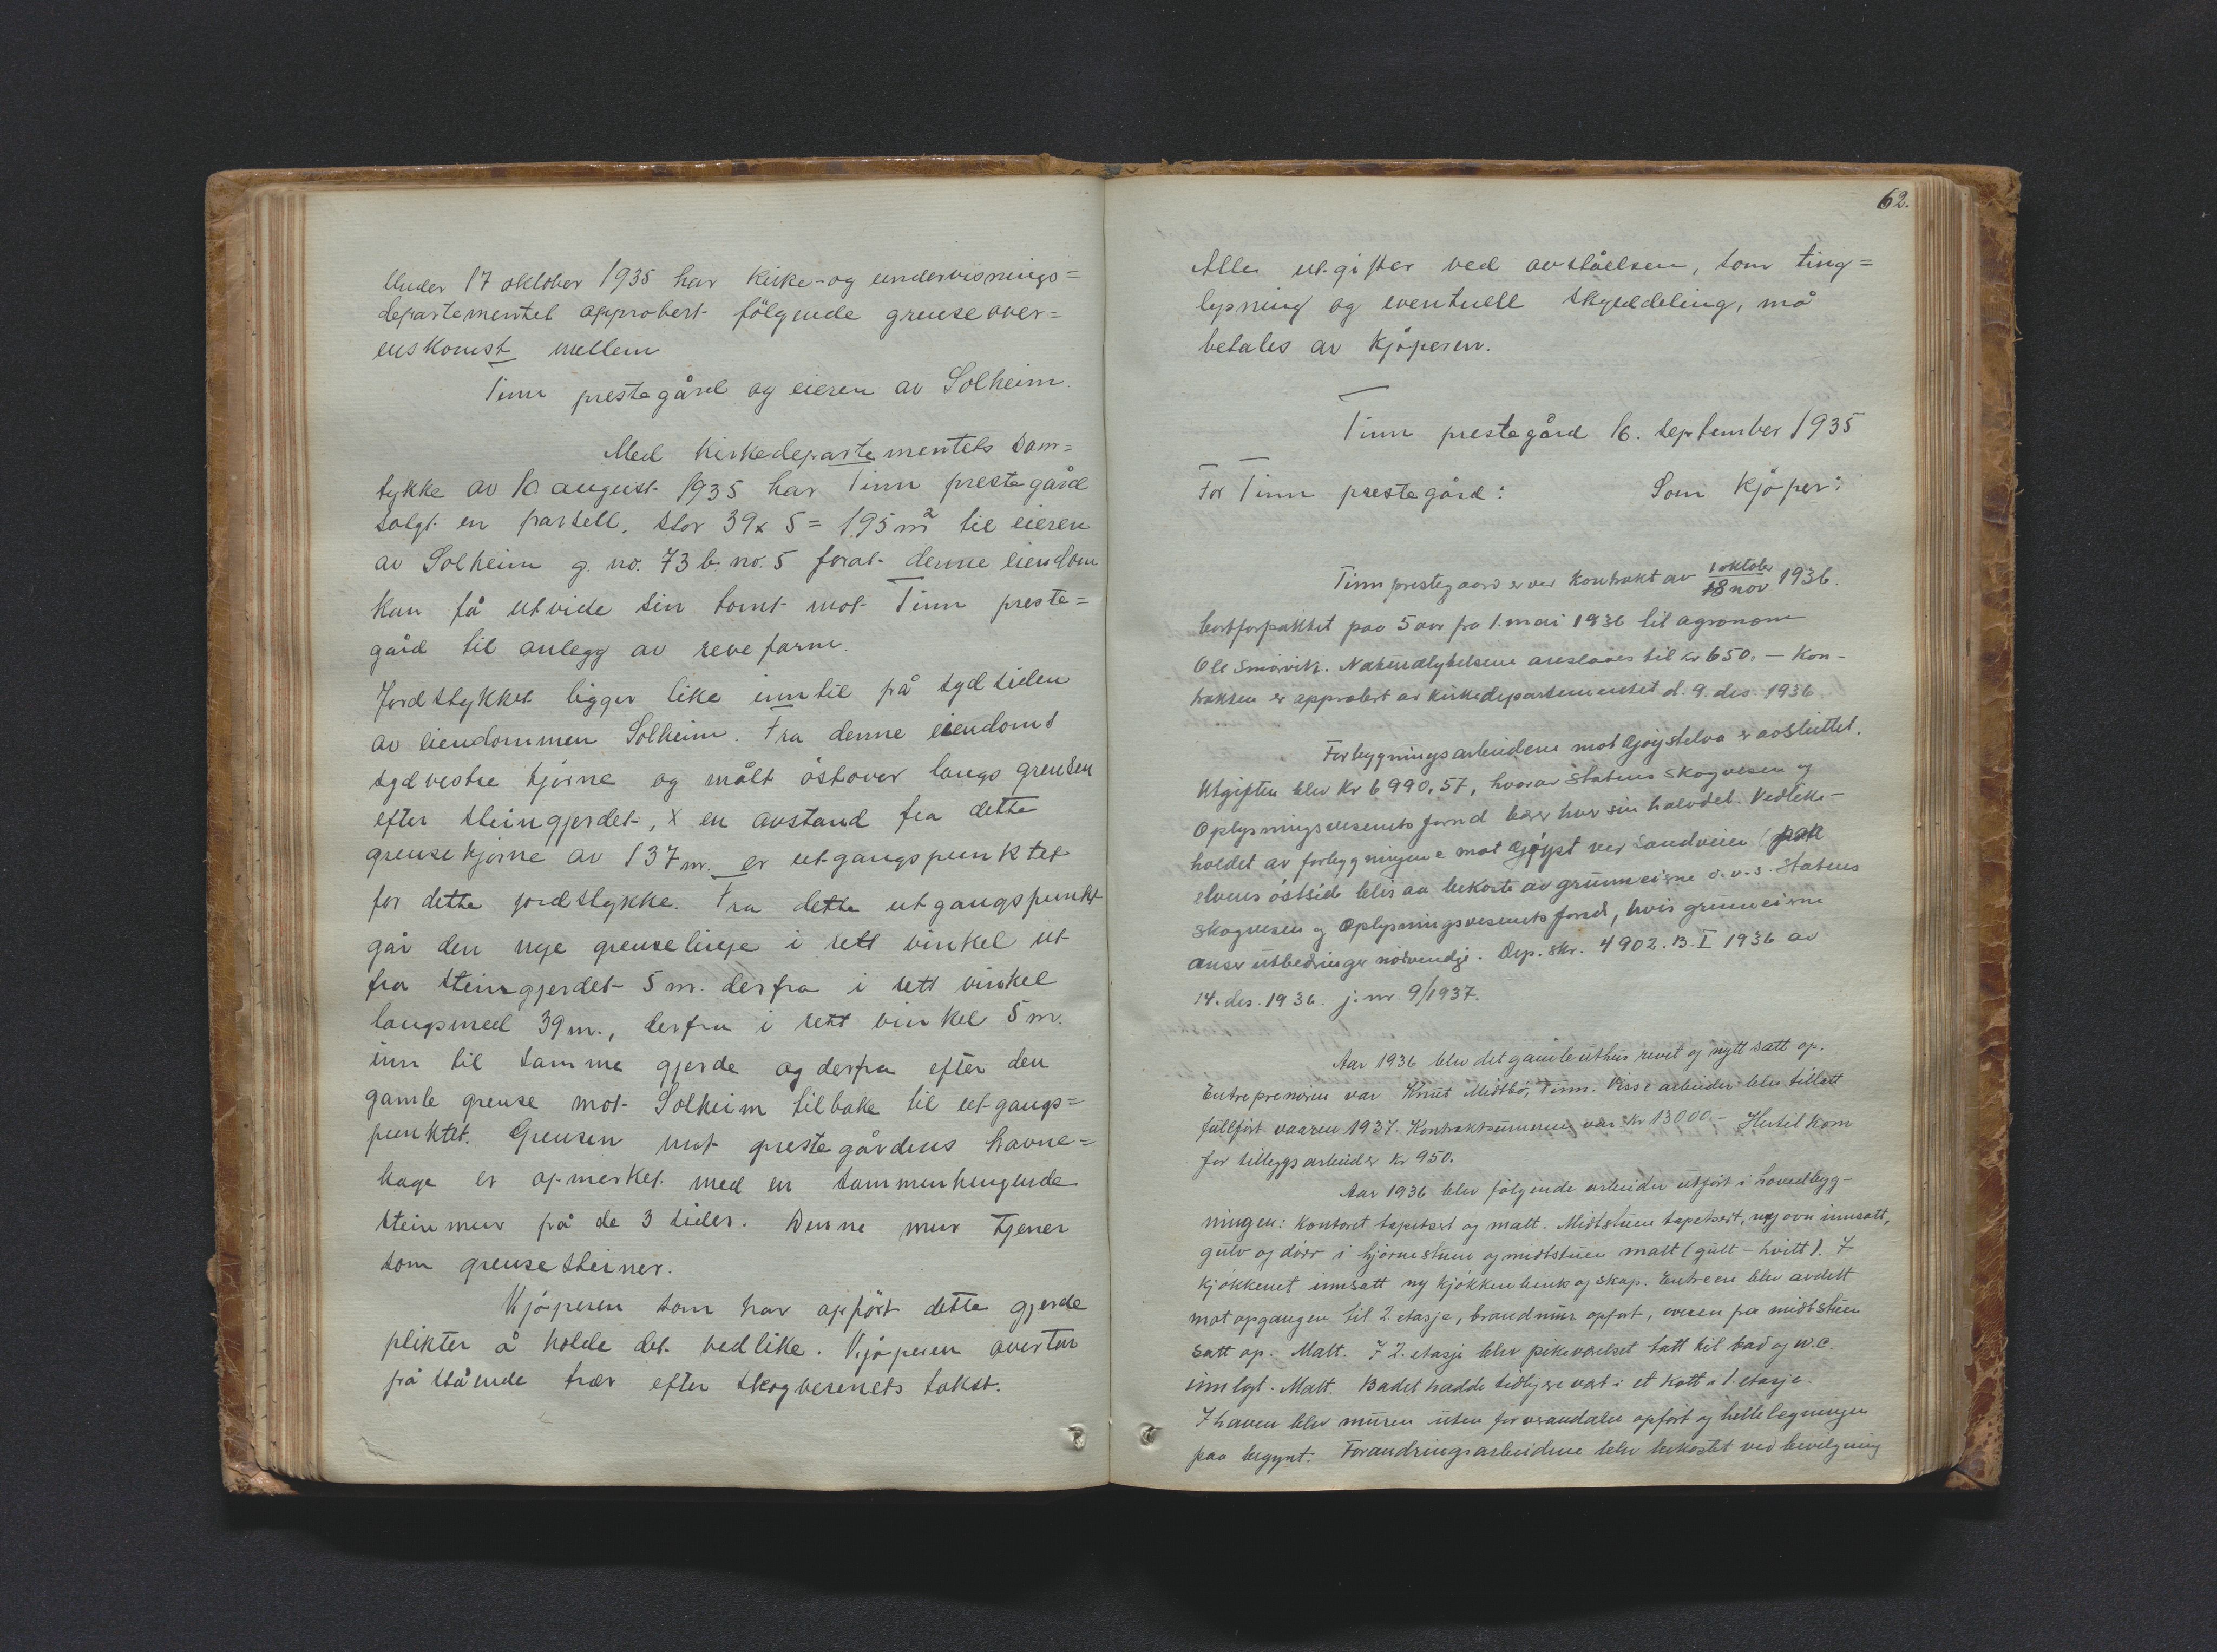 Under 17 oktober 1935 har kirke- og undervisnings=
departementet approbert følgende grenseover=
enskomst mellem
Tinn prestegård og eieren av Solheim.
Med kirkedepartementets sam=
tykke av 10 august 1935 har Tinn prestegård
solgt en parsell, stor 39 x 5 = 195 m² til eieren
av Solheim g. no. 73 b. no. 5 forat denne eiendom
kan få utvide sin tomt mot Tinn preste=
gård til anlegg av revefarm.
Jordstykket ligger like inntil på sydsiden
av eiendommen Solheim. Fra denne eiendoms
sydvestre hjørne og målt østover langs grensen
efter steingjerdet, x en avstand fra dette
grensehjørne av 137 m. er utgangspunktet
for dette jordstykke. Fra dette utgangspunkt
går den nye grenselinje i rett vinkel ut
fra steingjerdet 5 m. derfra i rett vinkel
langsmed 39 m., derfra i rett vinkel 5 m.
inn til samme gjerde og derfra efter den
gamle grense mot Solheim tilbake til utgangs=
punktet. Grensen mot prestegårdens havne=
hage er opmerket med en sammenhengende
steinmur på de 3 sider. Denne mur tjener
som grensesteiner.
Kjøperen som har opført dette gjerde
plikter å holde det vedlike. Kjøperen overtar
påstående trær efter skogvesenets takst.
62.
Alle utgifter ved avståelsen, som ting=
lysning og eventuell skylddeling, må
betales av kjøperen.
Tinn prestegård 16. september 1935
For Tinn prestegård: Som kjøper:
Tinn prestegaard er ved kontrakt av 1 oktober
18 nov 1936.
bortforpaktet paa 5 aar fra 1. mai 1936 til agronom
Ole Smørvik. Naturalytelsene ansloaes til kr 650. – Kon-
trakten er approbert av kirkedepartementet d. 9. des. 1936
Forbygningsarbeidene mot Gjøystelva er avsluttet.
Utgiften blev kr 6990,57, hvorav Statens skogvesen og
Oplysningsvesenets fond bærer hver sin halvdel. Vedlike-
holdet av forbygningene mot Gjøyst ved Sandveien paa
elvens østside blir aa bekoste av grunneierne d.v.s. Statens
skogvesen og Oplysningsvesenets fond, hvis grunneierne
anser utbedringer nødvendige. Dep. skr. 4902. B. I 1936 av
14. des. 1936. j. nr 9/1937.
Aar 1936 blev det gamle uthus revet og nytt satt op.
Entreprenøren var Knut Midtbø, Tinn. Visse arbeider blev tillatt
fullført vaaren 1937. Kontraktsummen var kr 13000.– Hertil kom
for tilleggsarbeider kr 950.
Aar 1936 blev følgende arbeider utført i hovedbygg-
ningen: Kontoret tapetsert og malt. Midtstuen tapetsert, ny ovn innsatt,
gulv og dører i hjørnestuen og midtstuen malt (gult – hvitt). I
kjøkkenet innsatt ny kjøkkenbenk og skap. Entreen blev avdelt
mot opgangen til 2. etasje, brandmur opført, ovnen fra midtstuen
satt op. Malt. I 2. etasje blev pikeværelset tatt til bad og w.c.
innlagt. Malt. Badet hadde tidligere vært i et kott i 1. etasje.
I haven blev muren uten for verandaen opført og hellelegningen
paabegynt. Forandringsarbeidene blev bekostet ved bevilgning